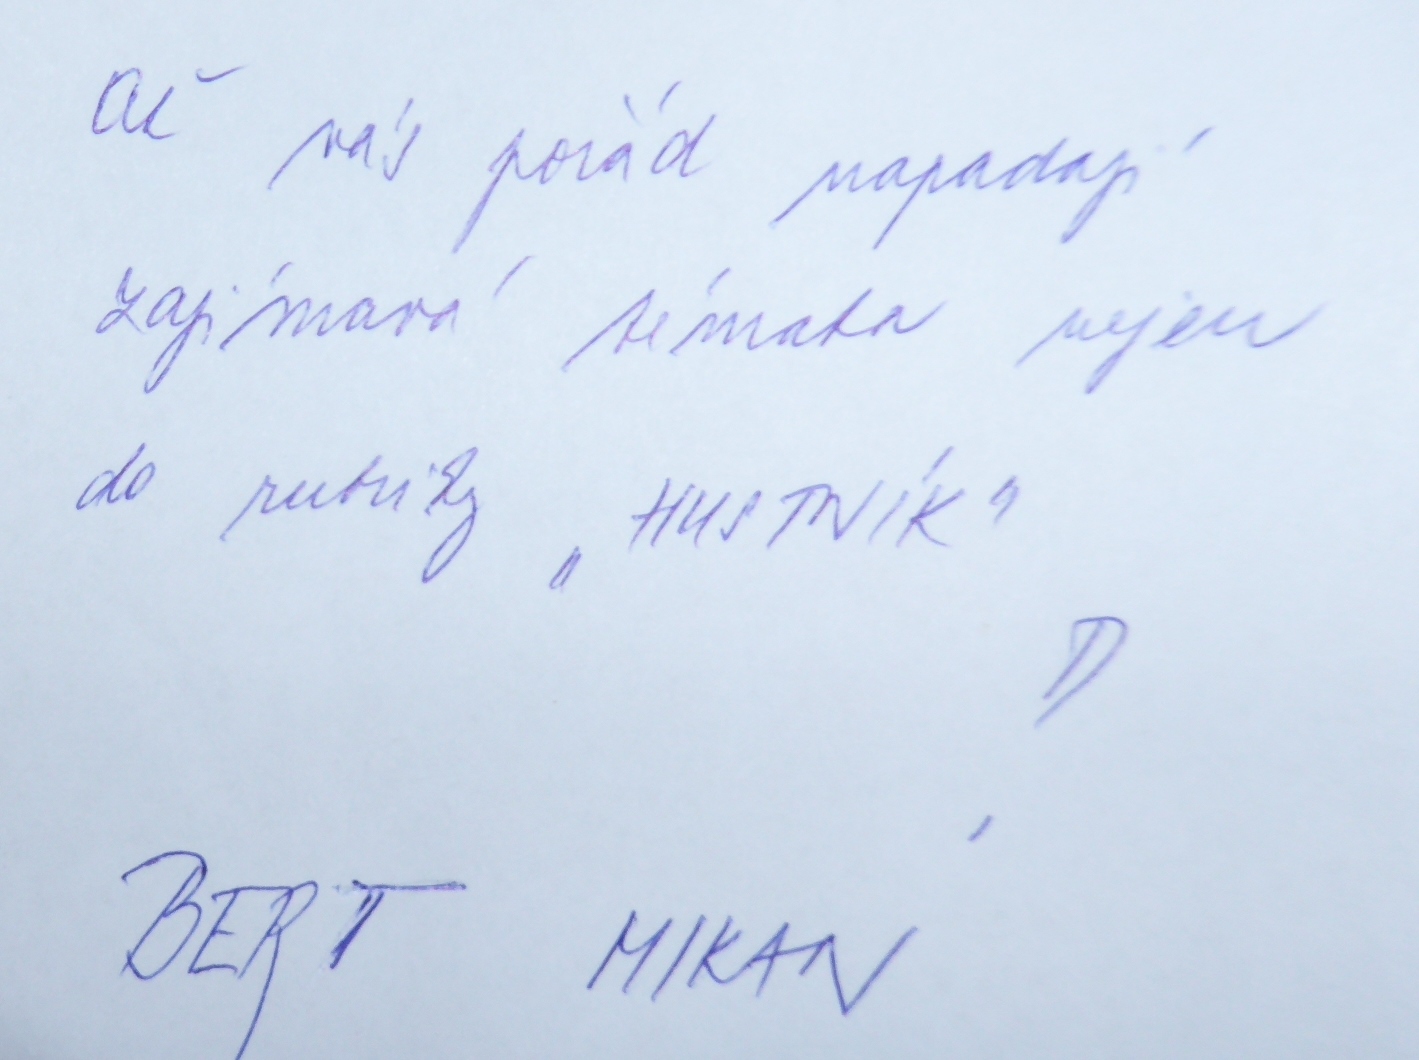 Ať vás pořád napadají
zajímavá témata nejen
do rubriky „HUSTNÍK“
D
BERT MIKÁN